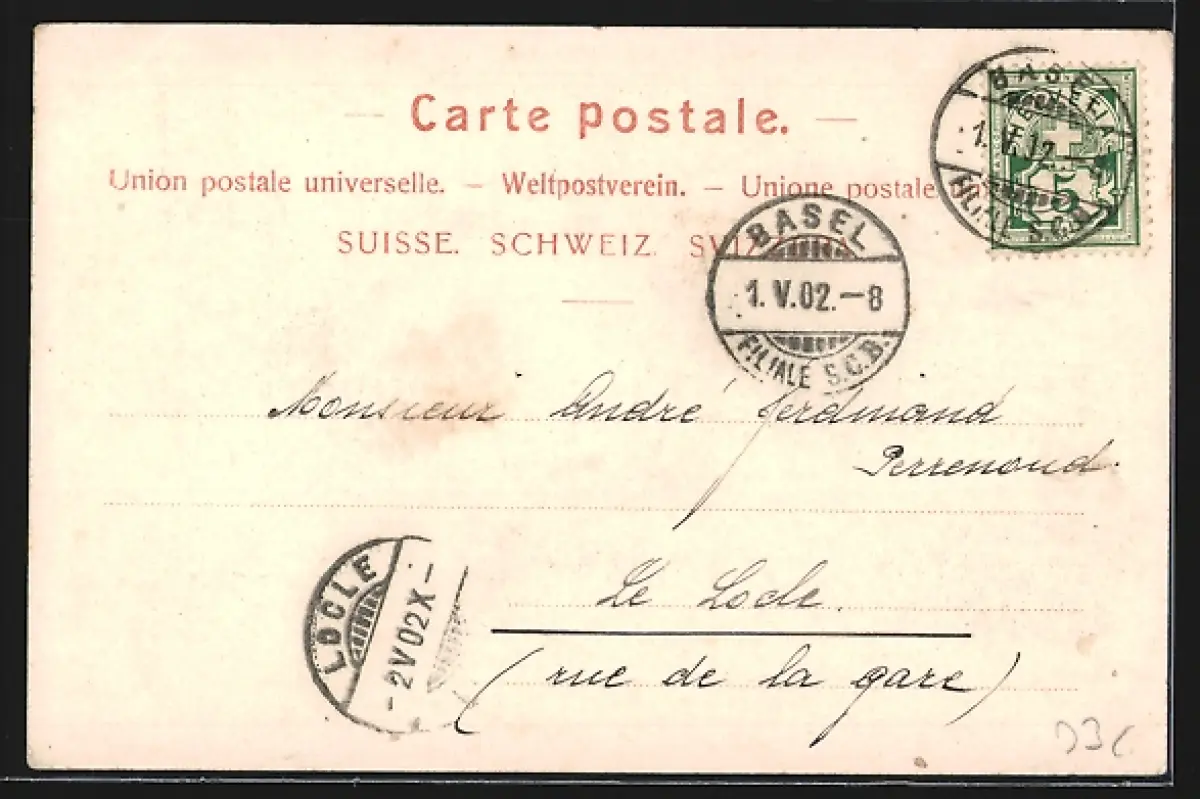 Carte postale.
Union postale universelle. — Weltpostverein. — Unione postale
SUISSE. SCHWEIZ. SVIZZERA
BASEL
1.V.02.—8
FILIALE S.C.B.
BASEL
FILIALE S.C.B.
5
Monsieur André Ferdinand
Perrenoud.
Le Locle.
(rue de la gare)
LOCLE
-2V02X-